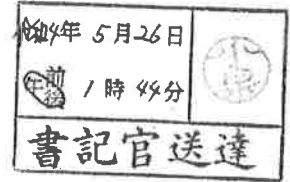 令和4年 5月26日
午前後 1時44分
書記官送達